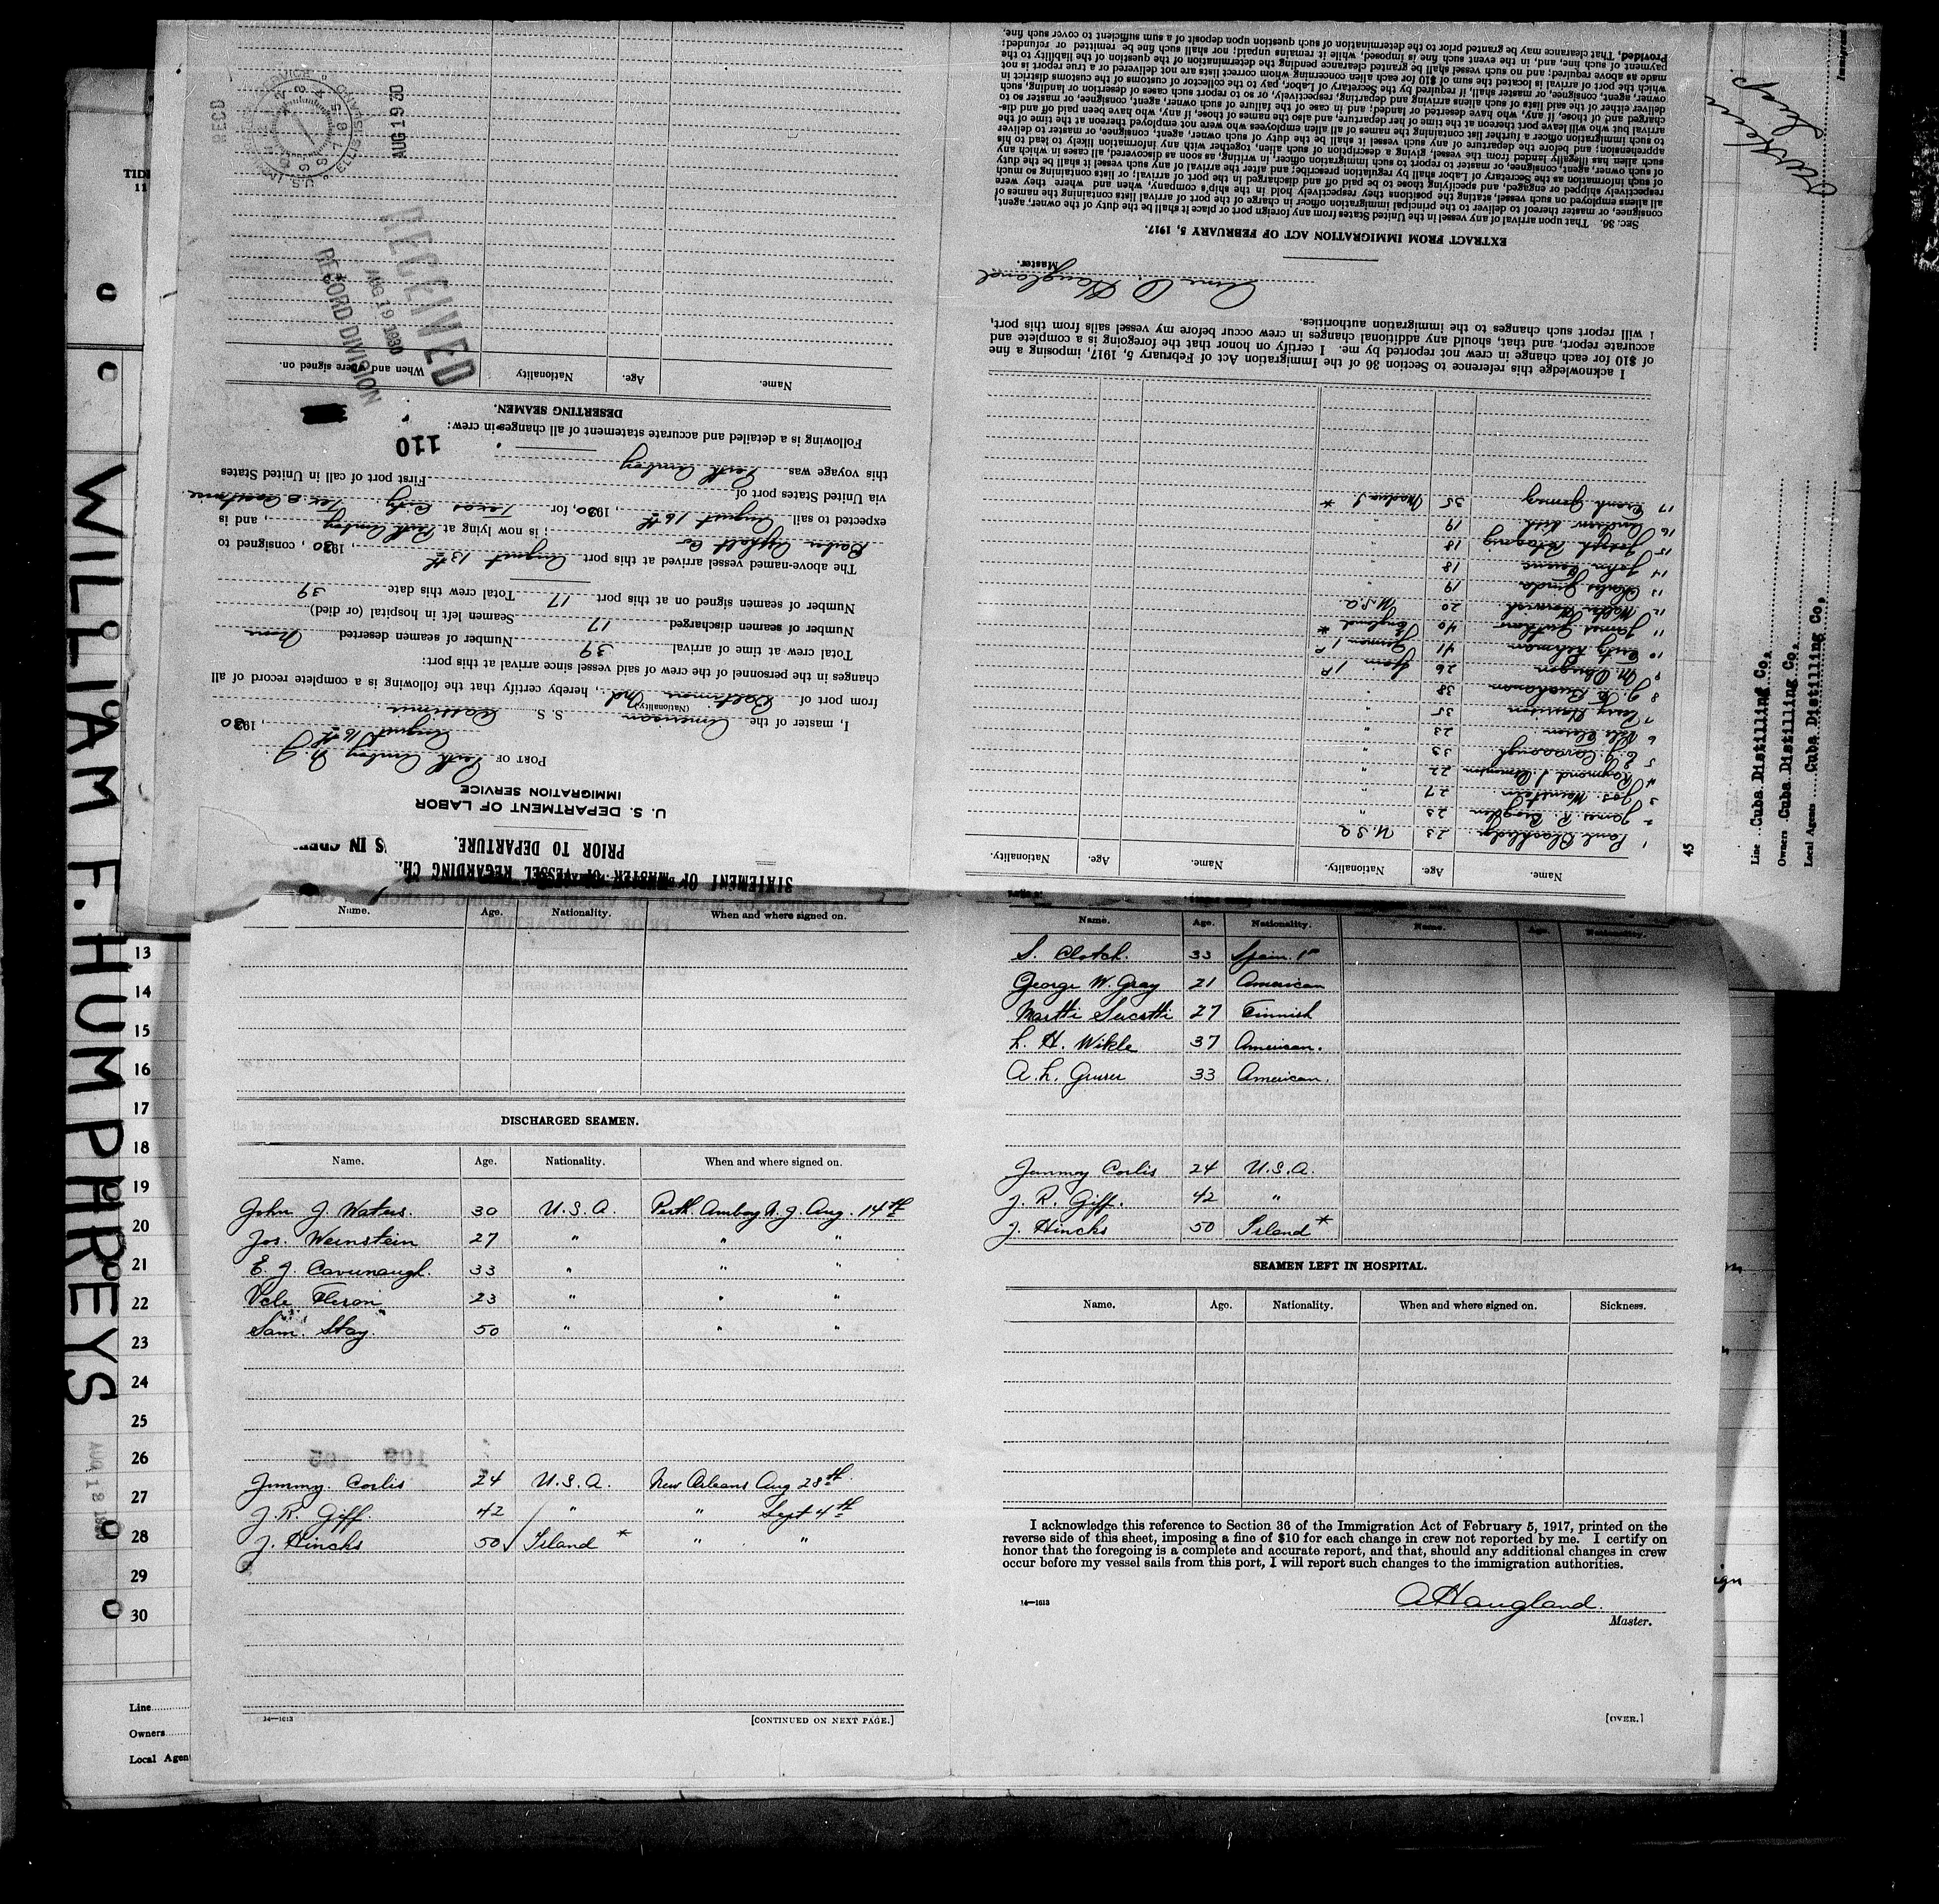 WILLIAM F. HUMPHREYS
STATEMENT OF MASTER OF VESSEL REGARDING
PRIOR TO DEPARTURE.
U. S. DEPARTMENT OF LABOR
IMMIGRATION SERVICE
PORT OF Perth Amboy N. J.
August 16th, 1930
I, master of the American S. S. Baltimore
(Nationality)
from port of Baltimore Md, hereby certify that the following is a complete record of all
changes in the personnel of the crew of said vessel since arrival at this port:
Total crew at time of arrival 39 Number of seamen deserted None
Number of seamen discharged 17 Seamen left in hospital (or died)
Number of seamen signed on at this port 17 Total crew this date 39
The above-named vessel arrived at this port August 13th, 1930, consigned to
Barber Asphalt Co; is now lying at Perth Amboy, and is
expected to sail August 16th, 1930, for Texas City, Tex.
via United States port of First port of call in United States
this voyage was Perth Amboy
110
Following is a detailed and accurate statement of all changes in crew:
DESERTING SEAMEN.
Name. Age. Nationality When and where signed on.
RECEIVED
AUG 19 1930
RECORD DIVISION
AUG 19 30
RECD
Name. Age. Nationality. Name. Age. Nationality.
1 Paul 23 U.S.A
2 James R. 23 "
3 Jos Weinstein 27 "
4 Raymond J. 22 "
5 E. J. Cavanaugh 33 "
6 23 "
7 Harrison 35 "
8 J. Buchanan 38 "
9 M. 26
10 41 German
11 James 40 England *
12 Walter 20 U.S.A
13 Charles 19 "
14 John 18 "
15 Joseph 18 "
16 Anderson 19 "
17 Frank 35 *
I acknowledge this reference to Section 36 of the Immigration Act of February 5, 1917, imposing a fine
of $10 for each change in crew not reported by me. I certify on honor that the foregoing is a complete and
accurate report, and that, should any additional changes in crew occur before my vessel sails from this port,
I will report such changes to the immigration authorities.
Haugland
Master.
EXTRACT FROM IMMIGRATION ACT OF FEBRUARY 5, 1917.
Sec. 36. That upon arrival of any vessel in the United States from any foreign port or place it shall be the duty of the owner, agent,
consignee, or master thereof to deliver to the principal immigration officer in charge of the port of arrival lists containing the names of
all aliens employed on such vessel, stating the positions they respectively hold in the ship's company, when and where they were
respectively shipped or engaged, and specifying those to be paid off and discharged in the port of arrival; or lists containing so much
of such information as the Secretary of Labor shall by regulation prescribe; and after the arrival of any such vessel it shall be the duty
of such owner, agent, consignee, or master to report to such immigration officer, in writing, as soon as discovered, all cases in which any
such alien has illegally landed from the vessel, giving a description of such alien, together with any information likely to lead to his
apprehension; and before the departure of any such vessel it shall be the duty of such owner, agent, consignee, or master to deliver
to such immigration officer a further list containing the names of all alien employees who were not employed thereon at the time of the
arrival but who will leave port thereon at the time of her departure, and also the names of those, if any, who have been paid off and dis-
charged and of those, if any, who have deserted or landed; and in case of the failure of such owner, agent, consignee, or master so to
deliver either of the said lists of such aliens arriving and departing, respectively, or so to report such cases of desertion or landing, such
owner, agent, consignee, or master shall, if required by the Secretary of Labor, pay to the collector of customs of the customs district in
which the port of arrival is located the sum of $10 for each alien concerning whom correct lists are not delivered or a true report is not
made as above required; and no such vessel shall be granted clearance pending the determination of the question of the liability to the
payment of such fine, and, in the event such fine is imposed, while it remains unpaid; nor shall such fine be remitted or refunded;
Provided, That clearance may be granted prior to the determination of such question upon deposit of a sum sufficient to cover such fine.
45
Line Cuba Distilling Co,
Owners Cuba Distilling Co,
Local Agents Cuba Distilling Co,
Name. Age. Nationality. When and where signed on.
DISCHARGED SEAMEN.
Name. Age. Nationality. When and where signed on.
John J. Waters. 30 U.S.A Perth Amboy N.J. Aug. 14th
Jos. Weinstein 27 " " "
E. J. Cavunaugh. 33 " " "
Vele Fleron 23 " " "
Sam. Stay. 50 " " "
Jimmy. Corlis 24 U.S.A. New Orleans Aug 28th
J. R. Giff. 42 " " Sept 4th
J. Hincks 50 Island * " "
14—1613
[CONTINUED ON NEXT PAGE.]
Name. Age. Nationality. Name. Age. Nationality.
S. Clotch. 33 Spain
George W. Gray 21 American
Martti Sucotti 27 Finnish
L. H. Wikle 37 American.
A. L. 33 American.
Jimmoy Corlis 24 U.S.A.
J. R. Giff. 42 "
J. Hincks 50 Island *
SEAMEN LEFT IN HOSPITAL.
Name. Age. Nationality. When and where signed on. Sickness.
I acknowledge this reference to Section 36 of the Immigration Act of February 5, 1917, printed on the
reverse side of this sheet, imposing a fine of $10 for each change in crew not reported by me. I certify on
honor that the foregoing is a complete and accurate report, and that, should any additional changes in crew
occur before my vessel sails from this port, I will report such changes to the immigration authorities.
A Haugland.
14—1613
Master.
[OVER.]
13
14
15
16
17
18
19
20
21
22
23
24
25
26
27
28
29
30
Line
Owners
Local Agen